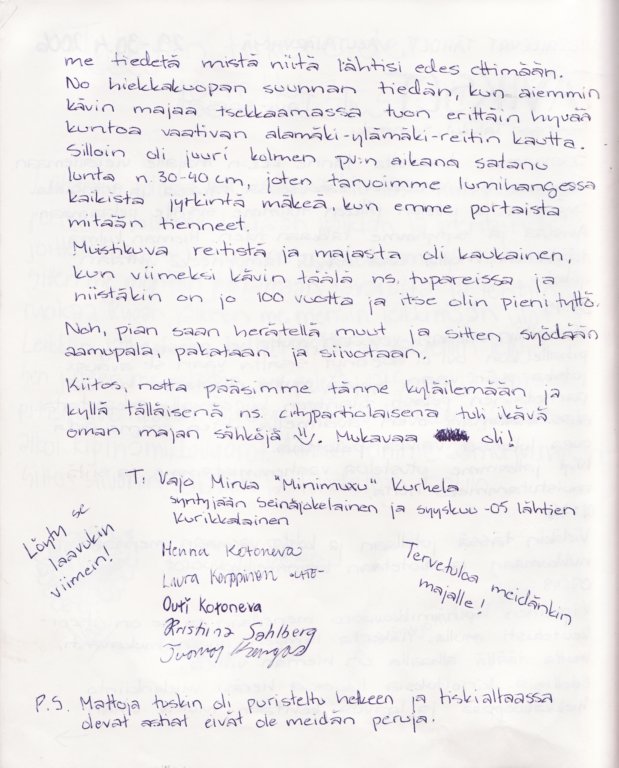 me tiedetä mistä niitä lähtisi edes etsimään.
No hiekkakuopan suunnan tiedän, kun aiemmin
kävin majaa tsekkaamassa tuon erittäin hyvää
kuntoa vaativan alamäki-ylämäki-reitin kautta.
Silloin oli juuri kolmen pv:n aikana satanu
lunta n. 30-40 cm, joten tarvoimme lumihangessa
kaikista jyrkintä mäkeä, kun emme portaista
mitään tienneet.
Muistikuva reitistä ja majasta oli kaukainen,
kun viimeksi kävin täälä ns. tupareissa ja
niistäkin on jo 100 vuotta ja itse olin pieni tyttö.
Noh, pian saan herätellä muut ja sitten syödään
aamupala, pakataan ja siivotaan.
Kiitos, notta pääsimme tänne kyläilemään ja
kyllä tälläisenä ns. citypartiolaisena tuli ikävä
oman majan sähköjä. Mukavaa oli!
T: Vajo Minua "Minimuxu" Kurhela
syntyjään Seinäjokelainen ja syyskuu -05 lähtien
Kurikkalainen
Löyty se
laavukin
viimein!
Henna Kotoneva
Laura Korppinen
Outi Kotoneva
Kristiina Sahlberg
Tervetuloa meidänkin
majalle!
P.S. Mattoja tuskin oli puristeltu hetkeen ja tiskialtaassa
olevat astiat eivät ole meidän peruja.